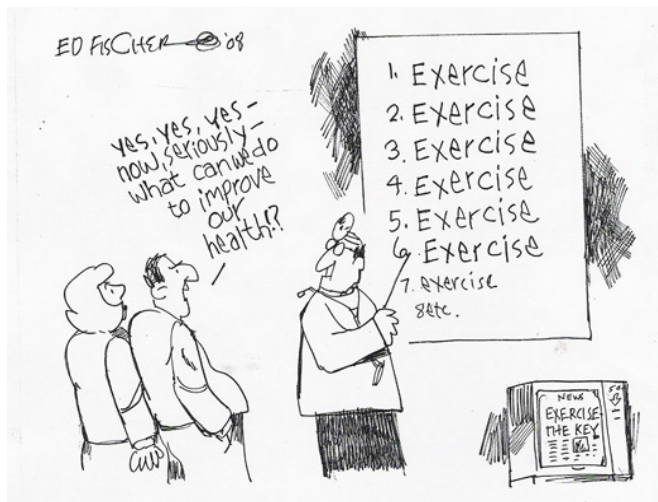 ED FISCHER '08
yes, yes, yes-
now, seriously-
what can we do
to improve
our
health!?
1. Exercise
2. Exercise
3. Exercise
4. Exercise
5. Exercise
6. Exercise
7. exercise
8 etc.
NEWS
EXERCISE-
THE KEY
50¢